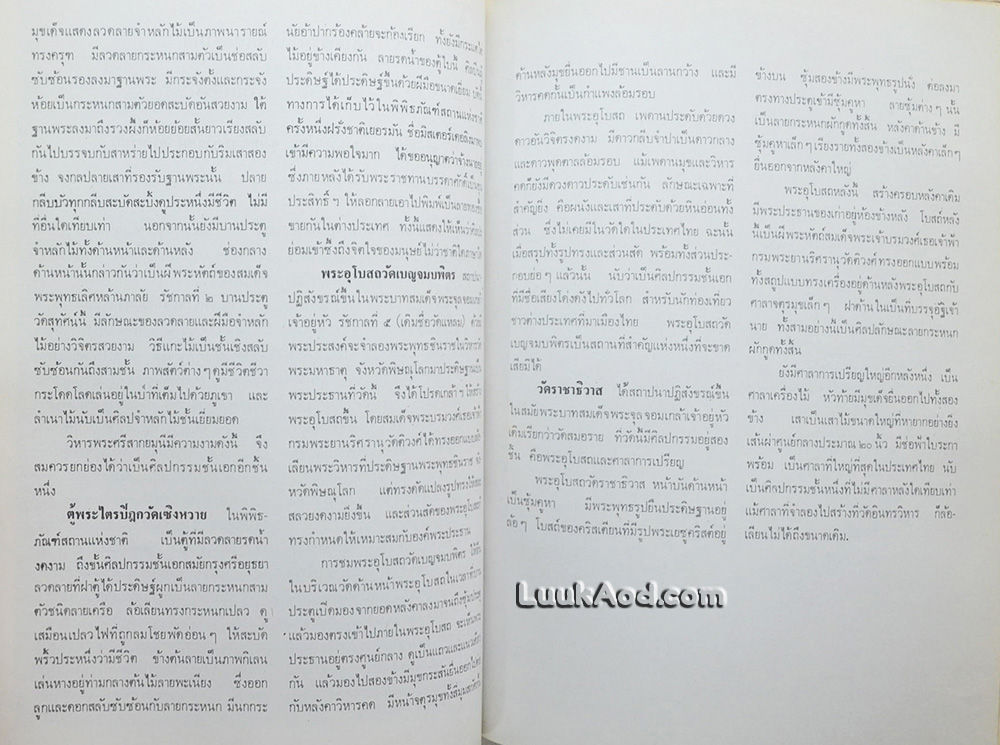 มุขเด็จแสดงลวดลายจำหลักไม้เป็นภาพนารายณ์
ทรงครุฑ มีลวดลายกระหนกสามตัวเป็นช่อสลับ
ซับซ้อนรองลงมาฐานพระ มีกระจังตั้งและกระจัง
ห้อยเป็นกระหนกสามตัวยอดสะบัดอันสวยงาม ใต้
ฐานพระลงมาถึงรวงผึ้งก็ห้อยย้อยสั้นยาวเรียงสลับ
กันไปบรรจบกับสาหร่ายไปประกอบกับริมเสาสอง
ข้าง จงกลปลายเสาที่รองรับฐานพระนั้น ปลาย
กลีบบัวทุกกลีบสะบัดสะบิ้งดูประหนึ่งมีชีวิต ไม่มี
ที่อื่นใดเทียบเท่า นอกจากนั้นยังมีบานประตู
จำหลักไม้ทั้งด้านหน้าและด้านหลัง ช่องกลาง
ด้านหน้านั้นกล่าวกันว่าเป็นฝีพระหัตถ์ของสมเด็จ
พระพุทธเลิศหล้านภาลัย รัชกาลที่ ๒ บานประตู
วัดสุทัศน์นี้ มีลักษณะของลวดลายและฝีมือจำหลัก
ไม้อย่างวิจิตรสวยงาม วิธีแกะไม้เป็นชั้นเชิงสลับ
ซับซ้อนกันถึงสามชั้น ภาพสัตว์ต่างๆ ดูมีชีวิตชีวา
กระโดดโลดเล่นอยู่ในป่าที่เต็มไปด้วยภูเขา และ
ลำเนาไม้นับเป็นศิลปจำหลักไม้ชั้นเยี่ยมยอด
วิหารพระศรีสากยมุนีมีความงามดังนี้ จึง
สมควรยกย่องได้ว่าเป็นศิลปกรรมชั้นเอกอีกชิ้น
หนึ่ง
ตู้พระไตรปิฎกวัดเซิงหวาย ในพิพิธ-
ภัณฑ์สถานแห่งชาติ เป็นตู้ที่มีลวดลายรดน้ำ
งดงาม ถึงขั้นศิลปกรรมชั้นเอกสมัยกรุงศรีอยุธยา
ลวดลายที่ฝาตู้ได้ประดิษฐ์ผูกเป็นลายกระหนกสาม
ตัวชนิดลายเครือ ล้อเลียนทรงกระหนกเปลว ดู
เสมือนเปลวไฟที่ถูกลมโชยพัดอ่อนๆ ให้สะบัด
พริ้วประหนึ่งว่ามีชีวิต ข้างต้นลายเป็นภาพกิเลน
เล่นหางอยู่ท่ามกลางต้นไม้ลายพะเนียง ซึ่งออก
ลูกและดอกสลับซับซ้อนกับลายกระหนก มีนกกระ
นัยอ้าปากร้องคล้ายจะก้องเรียก ทั้งยังมีกระแต
ไม้อยู่ข้างเคียงกัน ลายรดน้ำของตู้ใบนี้
ประดิษฐ์ได้ประดิษฐ์ขึ้นด้วยฝีมือขนาดเยี่ยม
ทางการได้เก็บไว้ในพิพิธภัณฑ์สถานแห่งชาติ
ครั้งหนึ่งฝรั่งชาติเยอรมัน
เข้ามีความพอใจมาก ได้ขออนุญาตว่าจ้าง
ซึ่งภายหลังได้รับพระราชทานบรรดาศักดิ์เป็น
ประสิทธิ์ฯ ให้ลอกลายเอาไปพิมพ์เป็นลาย
ขายกันในต่างประเทศ ทั้งนี้แสดงให้เห็น
ย่อมเข้าซึ้งถึงจิตใจของมนุษย์ไม่ว่าชาติใด
พระอุโบสถวัดเบญจมบพิตร
ปฏิสังขรณ์ขึ้นในพระบาทสมเด็จพระจุลจอมเกล้า
เจ้าอยู่หัว รัชกาลที่ ๕ (เดิมชื่อวัดแหลม)
พระประสงค์จะจำลองพระพุทธชินราชในวิหาร
พระมหาธาตุ จังหวัดพิษณุโลกมาประดิษฐาน
พระประธานที่วัดนี้ จึงได้โปรดเกล้าฯ
พระอุโบสถขึ้น โดยสมเด็จพระบรมวงศ์เธอเจ้าฟ้า
กรมพระยานริศรานุวัดติวงศ์ได้ทรงออกแบบ
เลียนพระวิหารที่ประดิษฐานพระพุทธชินราช จัง
หวัดพิษณุโลก แต่ทรงดัดแปลงรูปทรงให้
สลวยงดงามยิ่งขึ้น และส่วนสัดของพระอุโบสถ
ทรงกำหนดให้เหมาะสมกับองค์พระประธาน
การชมพระอุโบสถวัดเบญจมบพิตร
ในบริเวณวัดด้านหน้าพระอุโบสถในเวลา
ประตูเปิดมองจากยอดหลังคาลงมาจนถึงซุ้มประตู
แล้วมองตรงเข้าไปภายในพระอุโบสถ จะเห็นพระ
ประธานอยู่ตรงศูนย์กลาง ดูเป็นแถวและแนว
กัน แล้วมองไปสองข้างมีมุขกระสันยื่นออกไป
กับหลังคาวิหารคด มีหน้าจตุรมุขทั้งสี่มุม
ด้านหลังมุขยื่นออกไปมีชานเป็นลานกว้าง และมี
วิหารคดกั้นเป็นกำแพงล้อมรอบ
ภายในพระอุโบสถ เพดานประดับด้วยดวง
ดาวอันวิจิตรงดงาม มีดาวกลีบจำปาเป็นดาวกลาง
และดาวพุดตาลล้อมรอบ แม้เพดานมุขและวิหาร
คดก็ยังมีดวงดาวประดับเช่นกัน ลักษณะเฉพาะที่
สำคัญยิ่ง คือผนังและเสาที่ประดับด้วยหินอ่อนทั้ง
ส่วน ซึ่งไม่เคยมีในวัดใดในประเทศไทย ฉะนั้น
เมื่อสรุปทั้งรูปทรงและส่วนสัด พร้อมทั้งส่วนประ-
กอบย่อยๆ แล้วนั้น นับว่าเป็นศิลปกรรมชั้นเอก
ที่มีชื่อเสียงโด่งดังไปทั่วโลก สำหรับนักท่องเที่ยว
ชาวต่างประเทศที่มาเมืองไทย พระอุโบสถวัด
เบญจมบพิตรเป็นสถานที่สำคัญแห่งหนึ่งที่จะขาด
เสียมิได้
วัดราชาธิวาส ได้สถาปนาปฏิสังขรณ์ขึ้น
ในสมัยพระบาทสมเด็จพระจุลจอมเกล้าเจ้าอยู่หัว
เดิมเรียกว่าวัดสมอราย ที่วัดนี้มีศิลปกรรมอยู่สอง
ชิ้น คือพระอุโบสถและศาลาการเปรียญ
พระอุโบสถวัดราชาธิวาส หน้าบันด้านหน้า
เป็นซุ้มคูหา มีพระพุทธรูปยืนประดิษฐานอยู่
ล้อๆ โบสถ์ของคริสเตียนที่มีรูปพระเยซูคริสต์อยู่
ข้างบน ซุ้มสองข้างมีพระพุทธรูปนั่ง ต่อลงมา
ตรงทางประตูเข้ามีซุ้มคูหา ลายซุ้มต่างๆ นั้น
เป็นลายกระหนกผักกูดทั้งสิ้น หลังคาด้านข้าง มี
ซุ้มคูหาเล็กๆ เรียงรายทั้งสองข้างเป็นหลังคาเล็กๆ
ยื่นออกจากหลังคาใหญ่
พระอุโบสถหลังนี้ สร้างครอบหลังคาเดิม
มีพระประธานของเก่าอยู่ห้องข้างหลัง โบสถ์หลัง
นี้เป็นฝีพระหัตถ์สมเด็จพระเจ้าบรมวงศ์เธอเจ้าฟ้า
กรมพระยานริศรานุวัดติวงศ์ทรงออกแบบพร้อม
ทั้งสถูปแบบทรงเครื่องอยู่ด้านหลังพระอุโบสถกับ
ศาลาจตุรมุขเล็กๆ ฝาด้านในเป็นที่บรรจุอัฐิเจ้า
นาย ทั้งสามอย่างนี้เป็นศิลปลักษณะลายกระหนก
ผักกูดทั้งสิ้น
ยังมีศาลาการเปรียญใหญ่อีกหลังหนึ่ง เป็น
ศาลาเครื่องไม้ หัวท้ายมีมุขเด็จยื่นออกไปทั้งสอง
ข้าง เสาเป็นเสาไม้ขนาดใหญ่ที่หายากอย่างยิ่ง
เส้นผ่าศูนย์กลางประมาณ ๒๐ นิ้ว มีช่อฟ้าใบระกา
พร้อม เป็นศาลาที่ใหญ่ที่สุดในประเทศไทย นับ
เป็นศิลปกรรมชั้นหนึ่งที่ไม่มีศาลาหลังใดเทียบเท่า
แม้ศาลาที่จำลองไปสร้างที่วัดอินทรวิหาร ก็ล้อ-
เลียนไม่ได้ถึงขนาดเดิม.
LuukAod.com